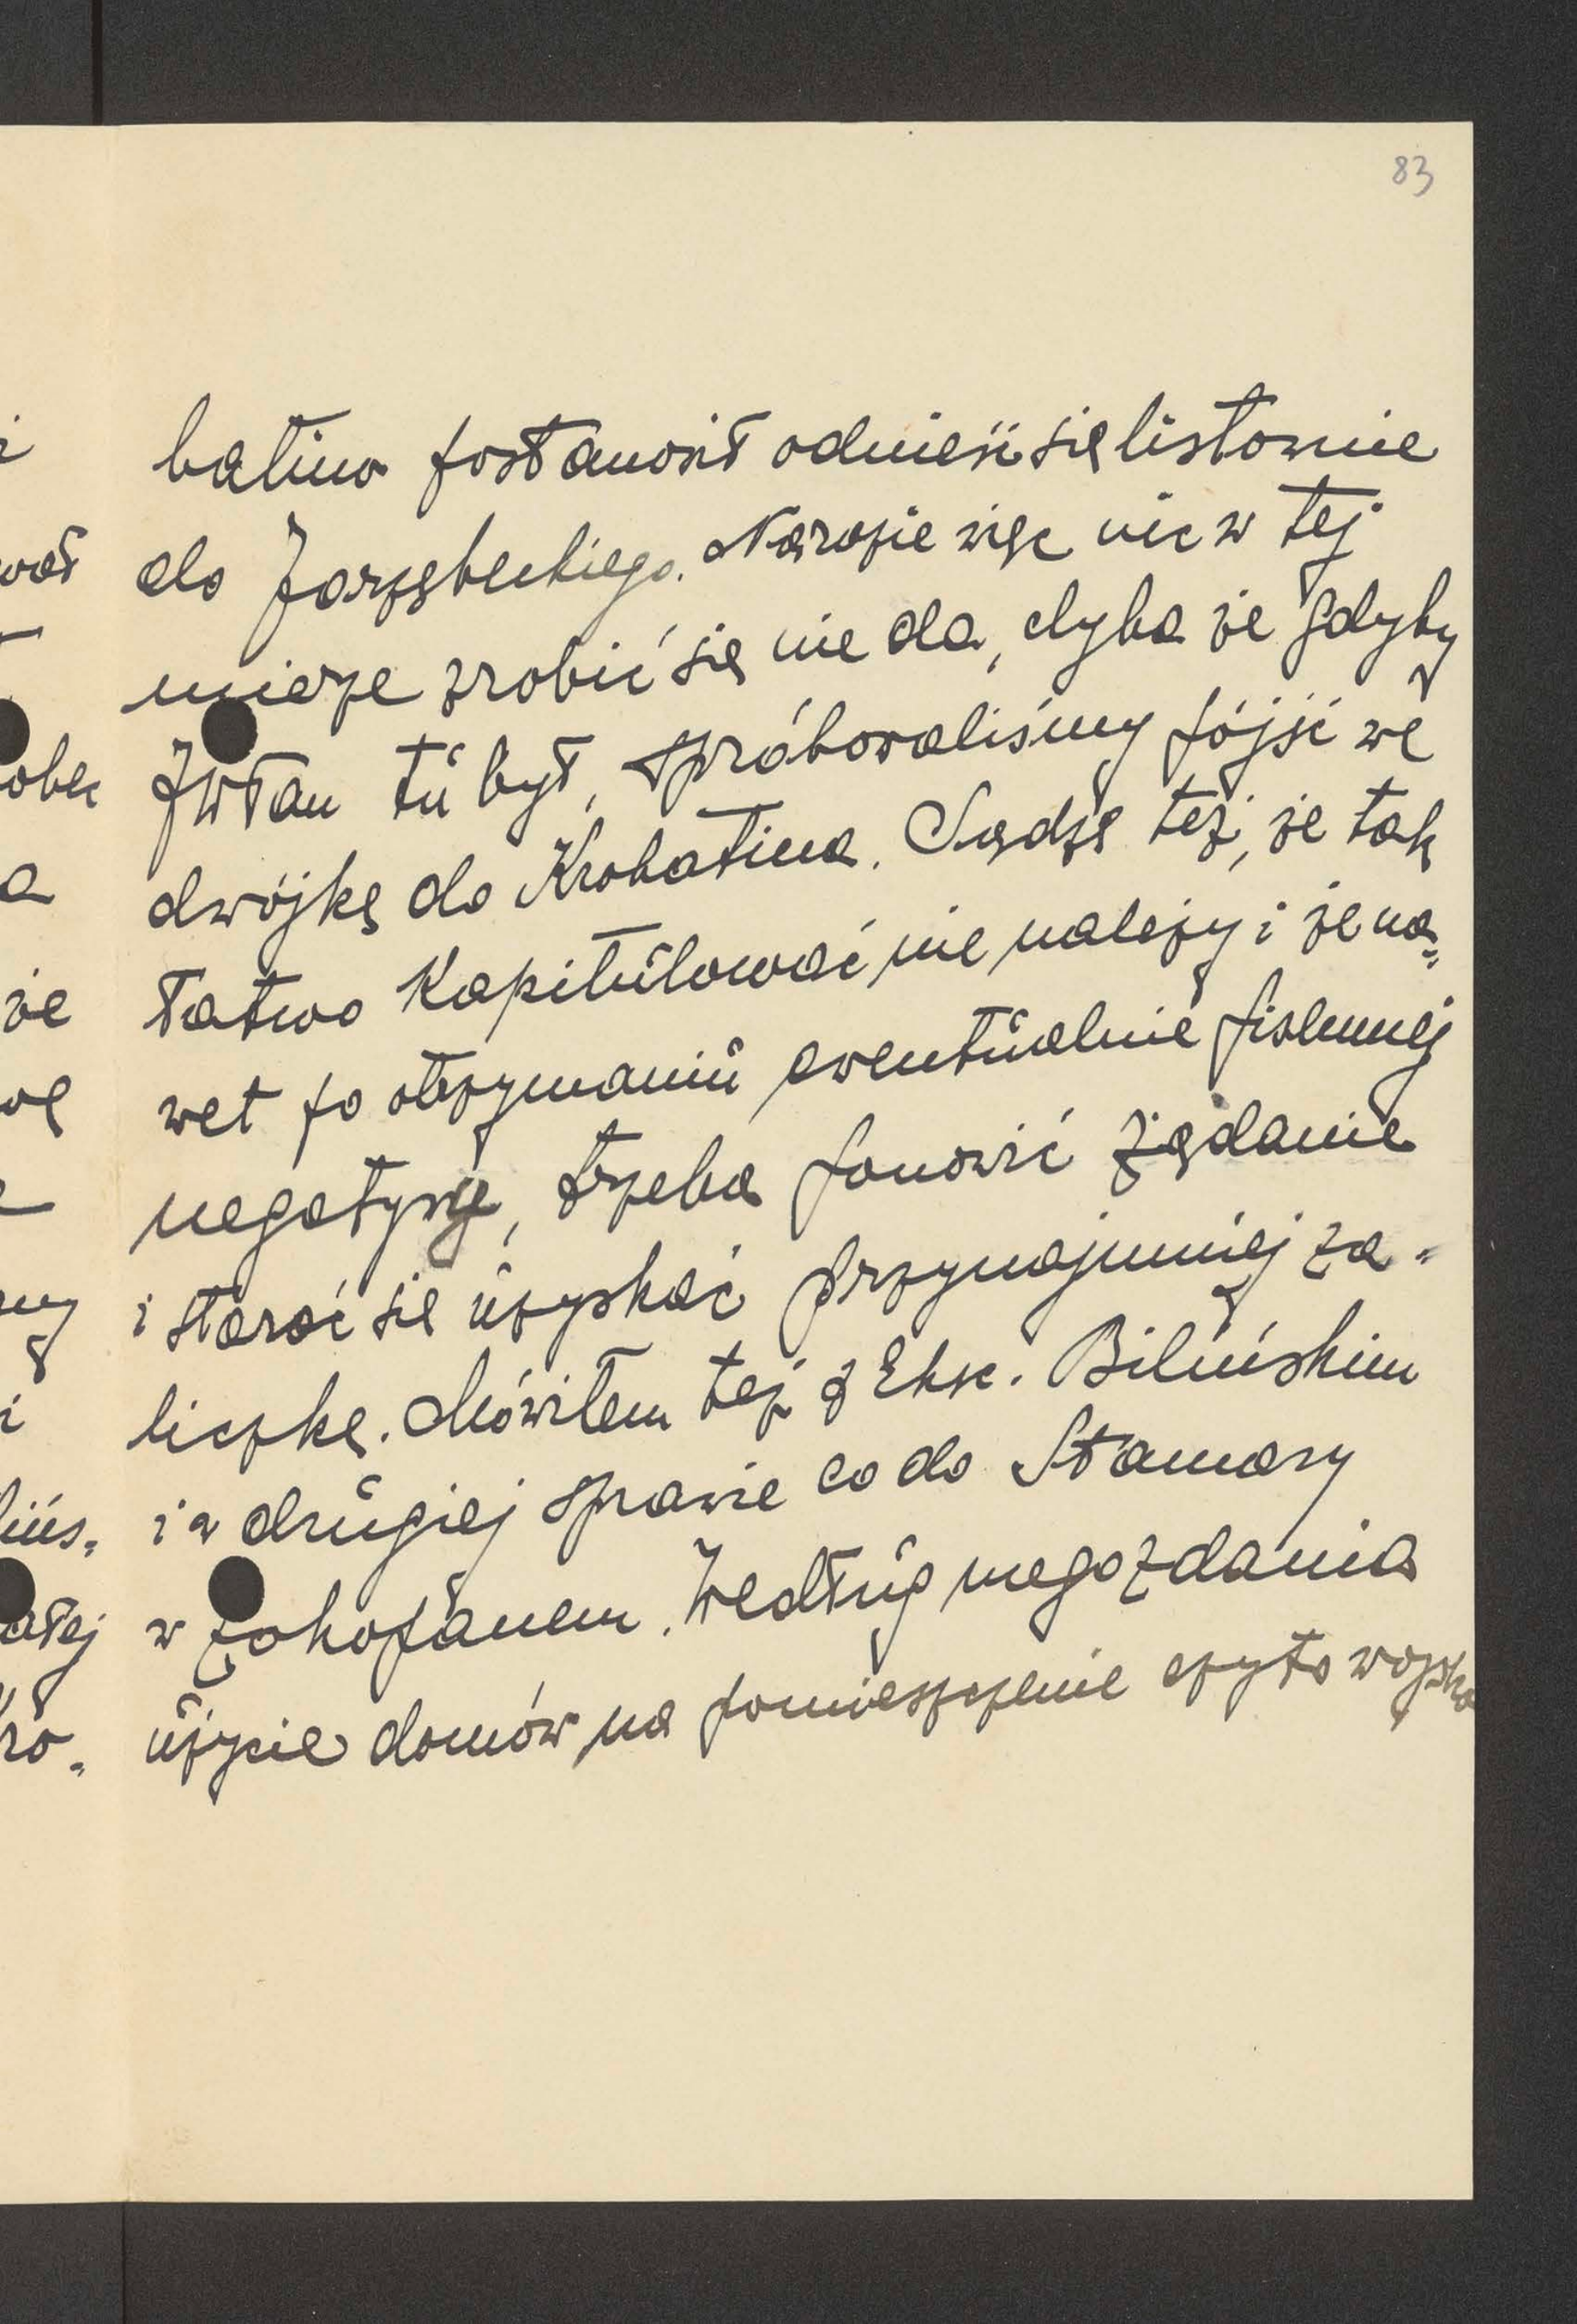 83
batina postanowił odnieść się listownie
do Jarzębeckiego. Narazie więc nic w tej
mierze zrobić się nie da, chyba że gdyby
JWPan tu był, spróbowaliśmy pójść we
dwójkę do Krobatina. Sądzę też, że tak
łatwo kapitulować nie należy i że na=
wet po otrzymaniu ewentualnie pisemnej
negatywy, trzeba ponowić żądanie
i starać się uzyskać przynajmniej za=
liczkę. Mówiłem też z Eksc. Bilińskim
i w drugiej sprawie co do Stamary
w Zakopanem. Według mego zdania
użycie domów na pomieszczenie czy to wojska